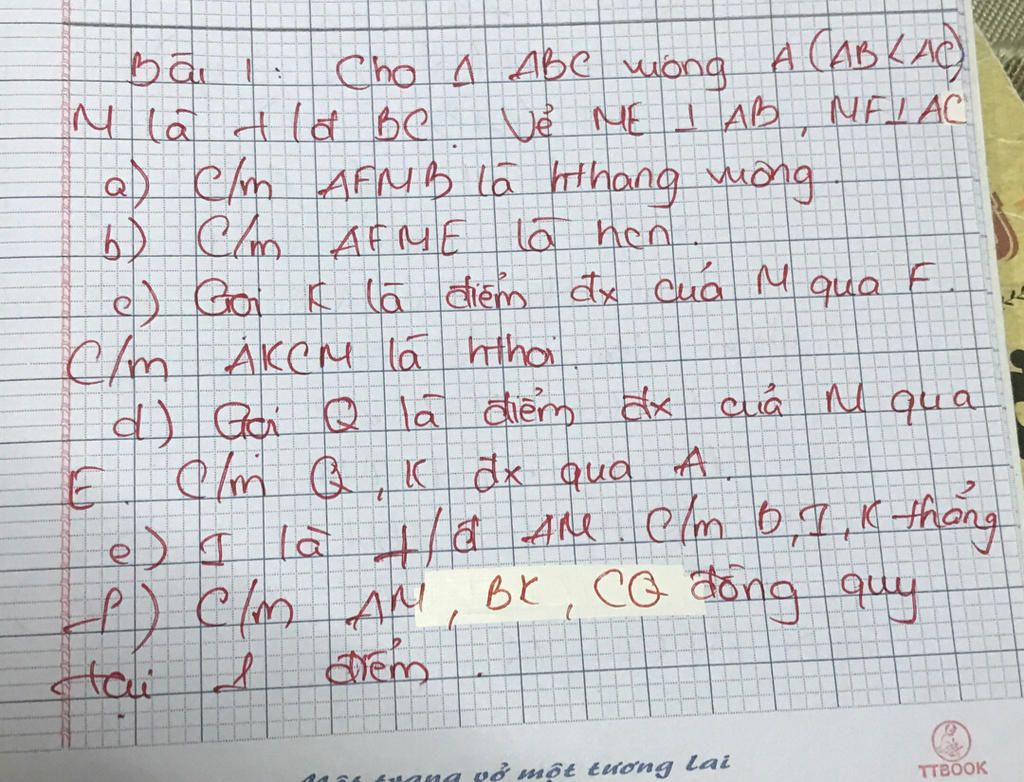 Bài 1: Cho Δ ABC vuông A (AB < AC)
M là t/đ BC. Vẽ ME ⊥ AB, MF ⊥ AC
a) C/m AFMB là hthang vuông.
b) C/m AFME là hcn.
c) Gọi K là điểm đx của M qua F.
C/m AKCM là hthoi.
d) Gọi Q là điểm đx của M qua
E. C/m Q, K đx qua A.
e) I là t/đ AM. C/m B, I, K thẳng
f) C/m AM, BK, CQ đồng quy
tại 1 điểm.
Một trang vở một tương lai
TTBOOK